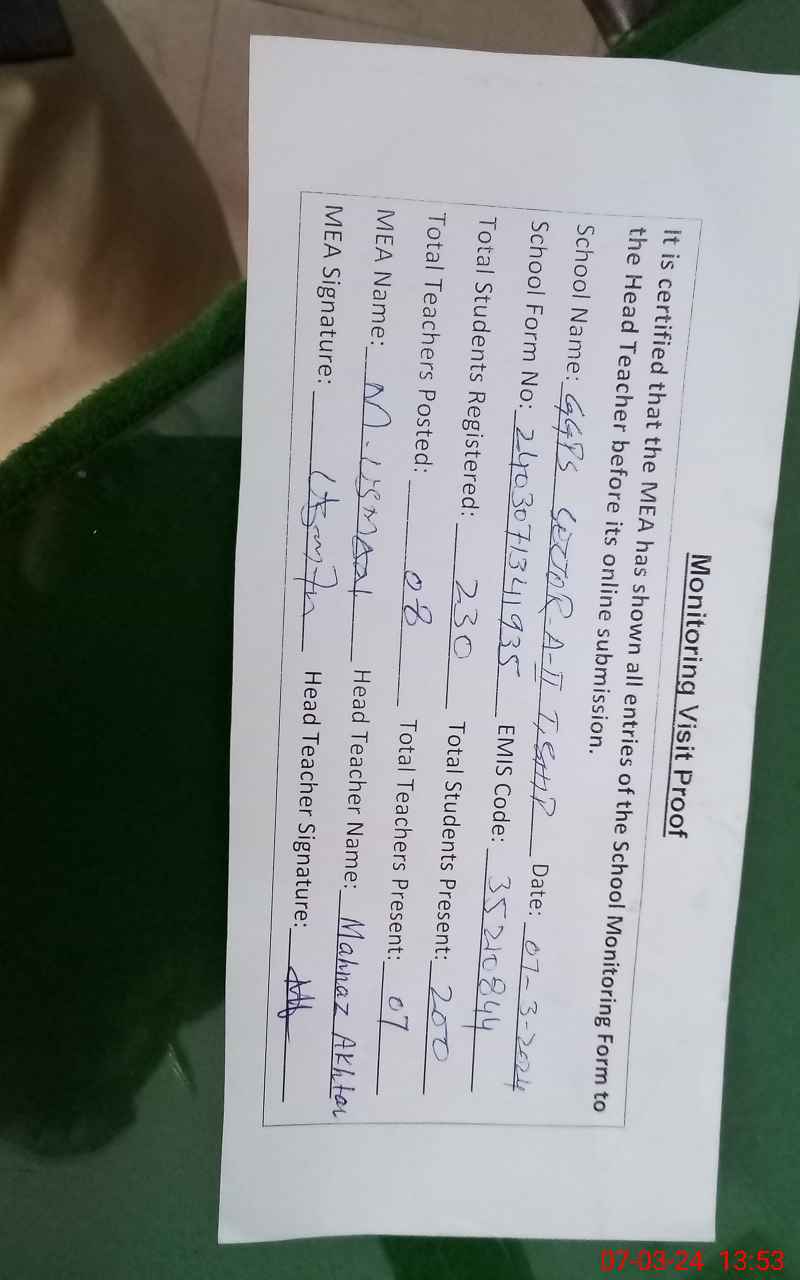 Monitoring Visit Proof
It is certified that the MEA has shown all entries of the School Monitoring Form to
the Head Teacher before its online submission.
School Name: GGPS SECTOR-A-II T,SHIP Date: 07-3-2024
School Form No: 2403071341935 EMIS Code: 35210844
Total Students Registered: 230 Total Students Present: 200
Total Teachers Posted: 08 Total Teachers Present: 07
MEA Name: M. USMAN Head Teacher Name: Mahnaz Akhtar
MEA Signature: Head Teacher Signature:
07-03-24 13:53